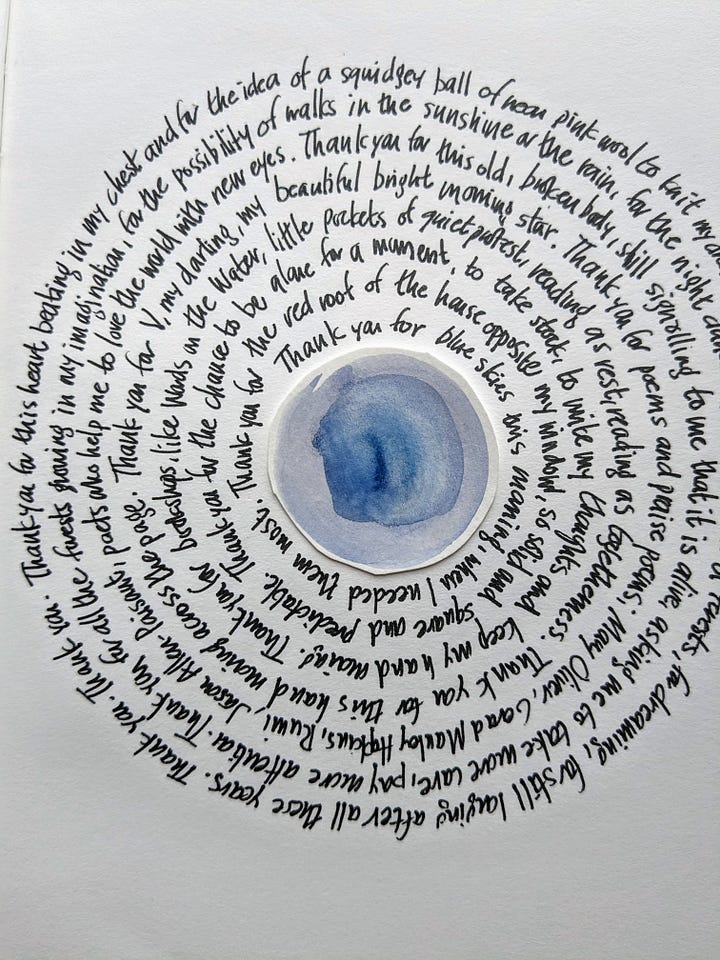 Thank you for blue skies this morning, when I needed them most.
Thank you for the red roof of the house opposite my window, so solid and square and predictable.
Thank you for the chance to be alone for a moment, to take stock, to write my thoughts and keep my hand moving.
Thank you for bookshops, like Words on the Water, little pockets of quiet protest, reading as rest, reading as togetherness. Thank you for this hand moving across the page.
Thank you for V, my darling, my beautiful bright morning star. Thank you for poems and praise poems; Mary Oliver, Gerard Manley Hopkins, Rumi, Jason Allen-Paisant,
poets who help me to love the world with new eyes. Thank you for this old, broken body, still signalling to me that it is alive, asking me to take more care, pay more attention. Thank you
for all the forests growing in my imagination, for the possibility of walks in the sunshine or the rain, for the night and forests, for dreaming, for still loving after all these years. Thank you. Thank you.
Thank you for this heart beating in my chest and for the idea of a squidgey ball of neon pink wool to knit my